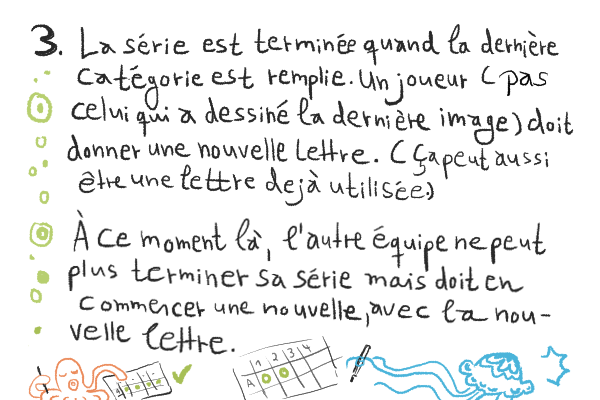 3. La série est terminée quand la dernière
catégorie est remplie. Un joueur (pas
celui qui a dessiné la dernière image) doit
donner une nouvelle lettre. (Ça peut aussi
être une lettre dejà utilisée.)
À ce moment là, l'autre équipe ne peut
plus terminer sa série mais doit en
commencer une nouvelle, avec la nou-
velle lettre.
1 2 3 4
A